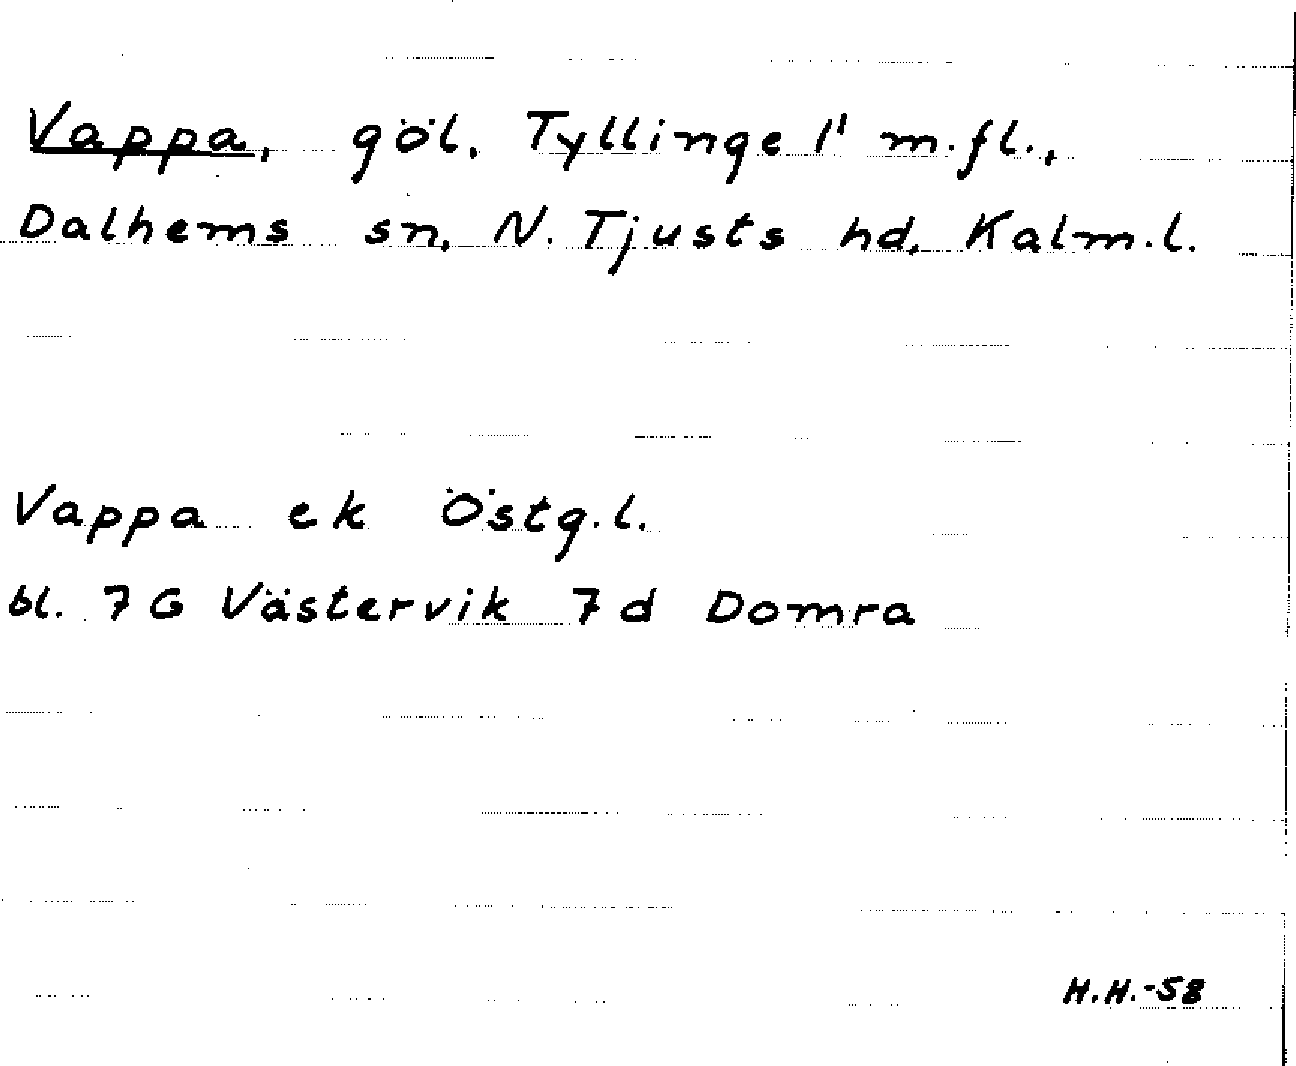 Vappa, göl, Tyllinge 1¹ m.fl.,
Dalhems sn, N. Tjusts hd, Kalm.l.
Vappa ek Östg.l.
bl. 7 G Västervik 7 d Domra
H.H.-58